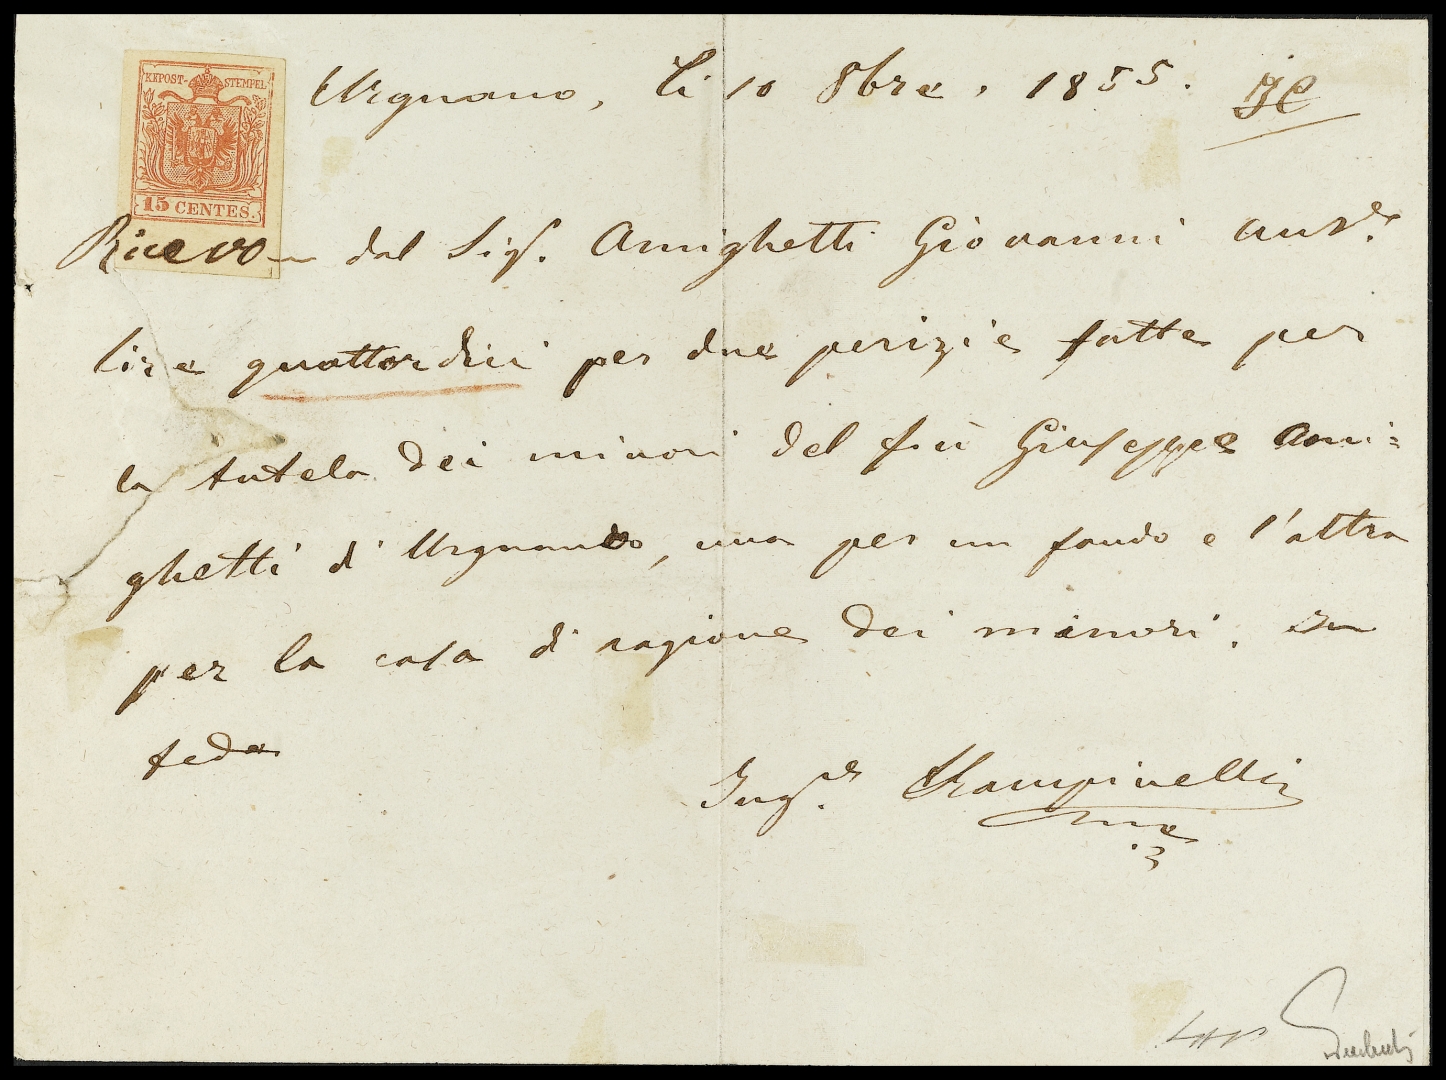 KKPOST-STEMPEL
15 CENTES.
Urgnano, li 10 8bre. 1855.
Ricevo dal Sigr. Amighetti Giovanni
lire quattordici per due perizie fatte per
la tutela dei minori del fu Giuseppe Ami=
ghetti di Urgnano, una per un fondo e l'altra
per la casa di ragione dei minori. In
fede
Ingre.